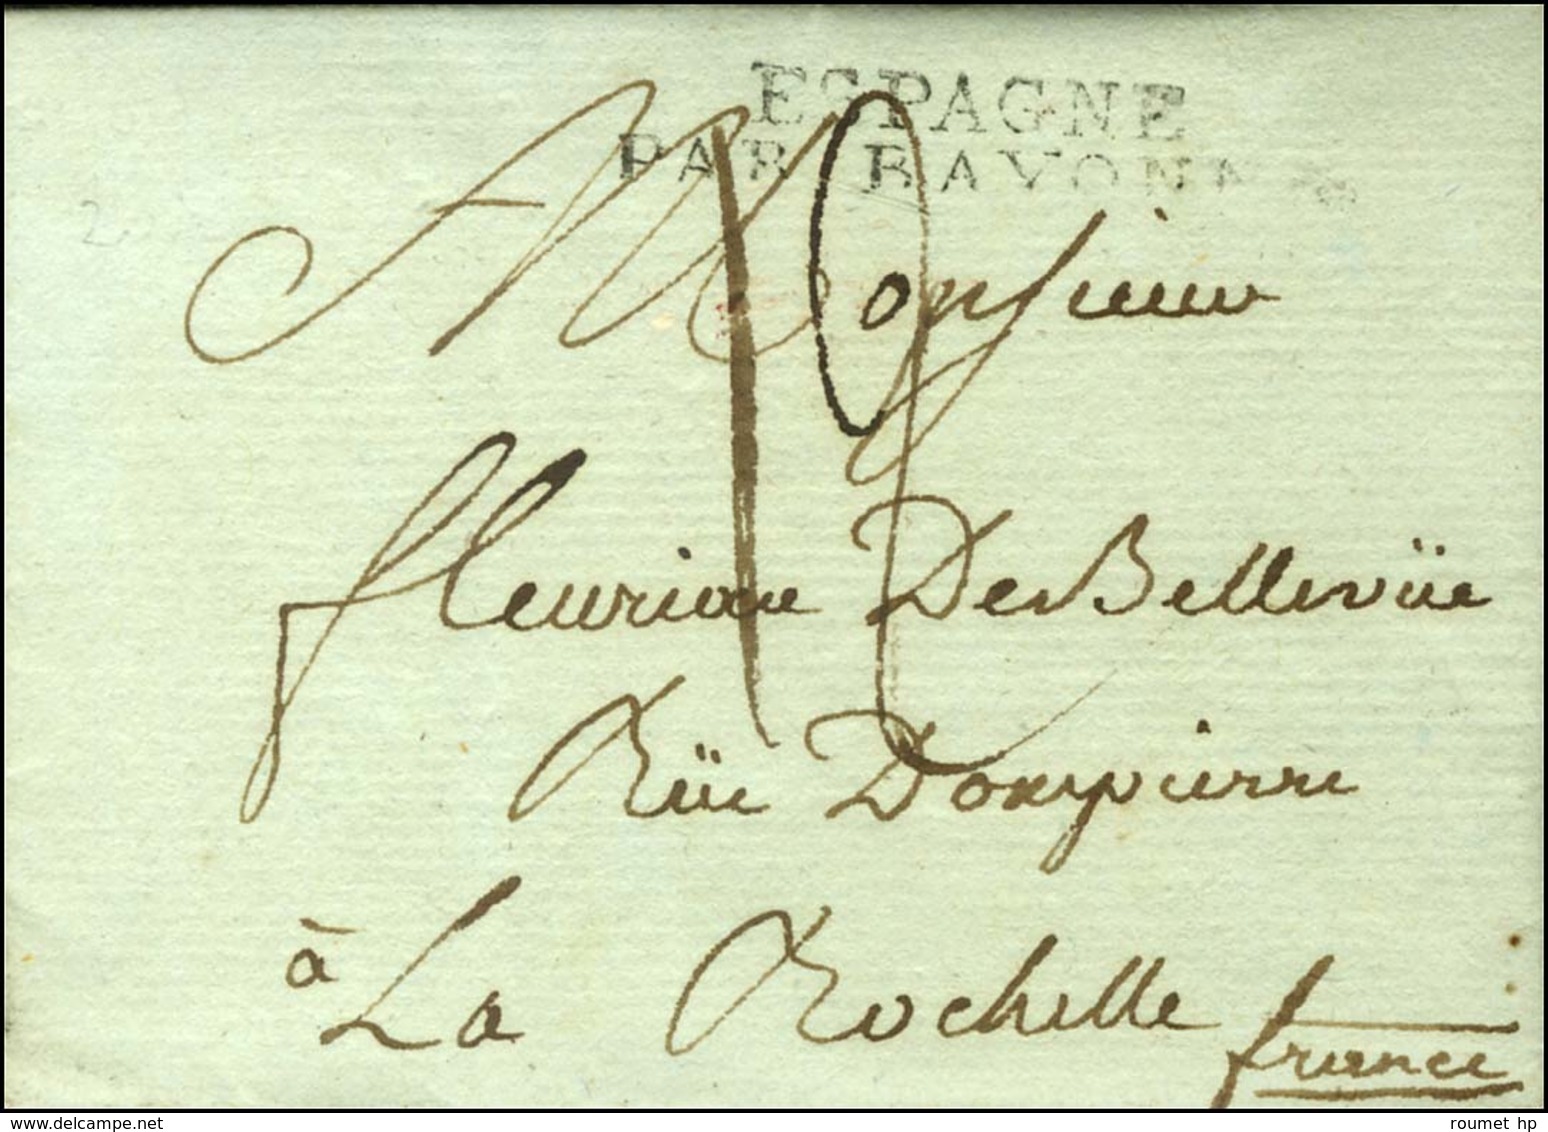 ESPAGNE
PAR BAYONNE
Monsieur
fleuriau De Bellevüe
Rüe Dompierre
à La Rochelle
france
roumet hp